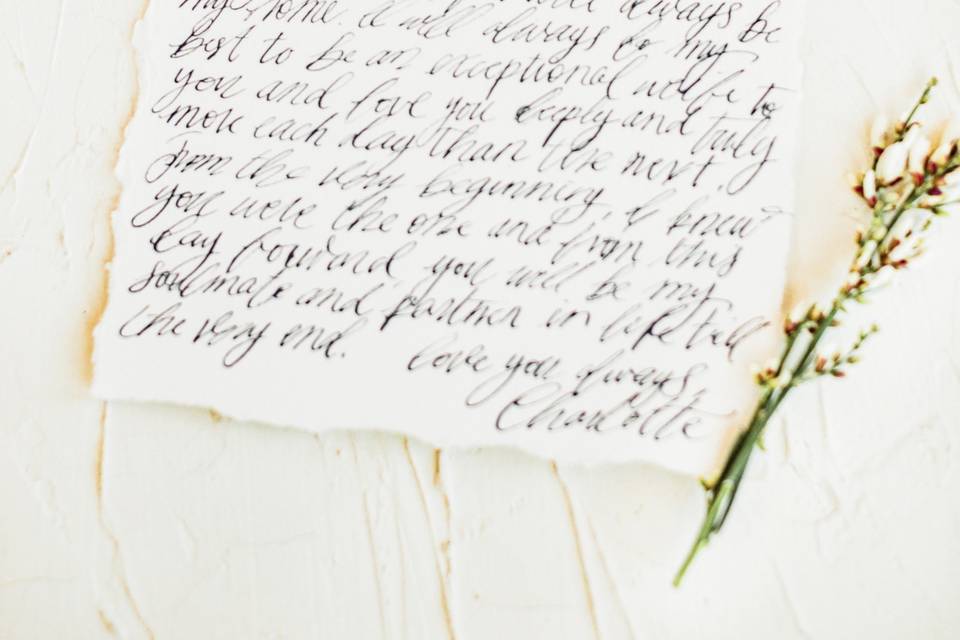 will always be
my home. I will always do my
best to be an exceptional wife to
you and love you deeply and truly
more each day than the next.
from the very beginning, I knew
you were the one and from this
day forward, you will be my
soulmate and partner in life till
the very end.
love you always,
Charlotte